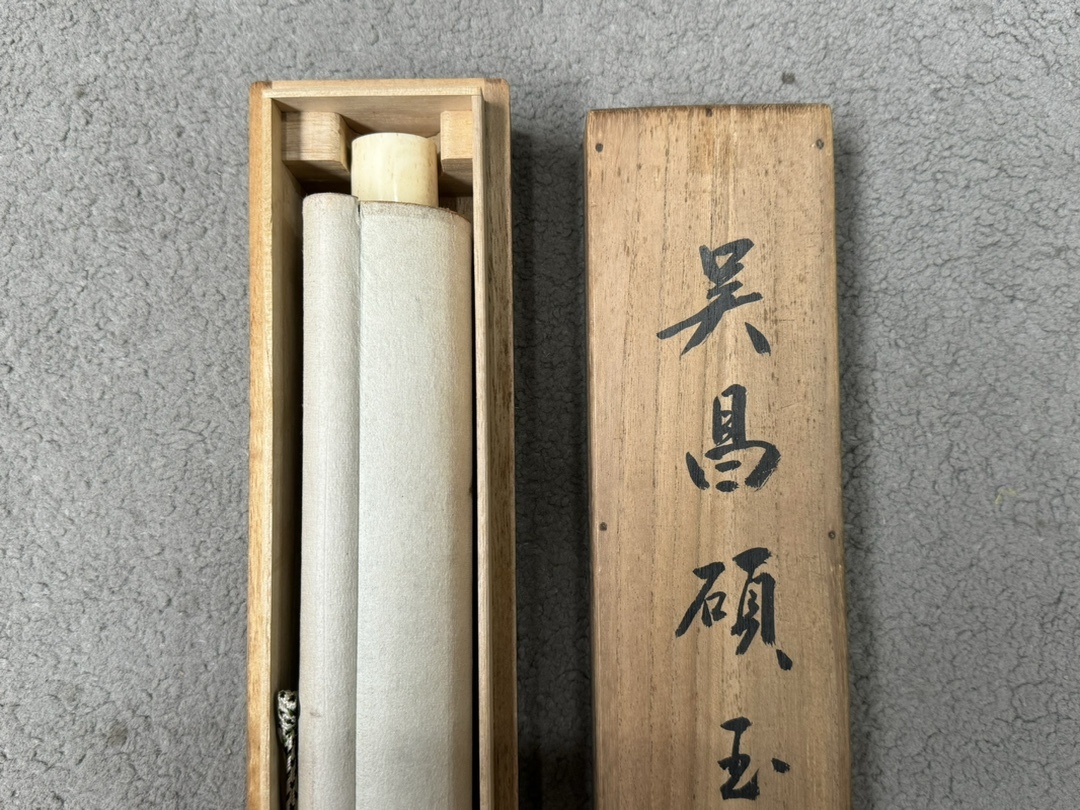 吴昌碩玉